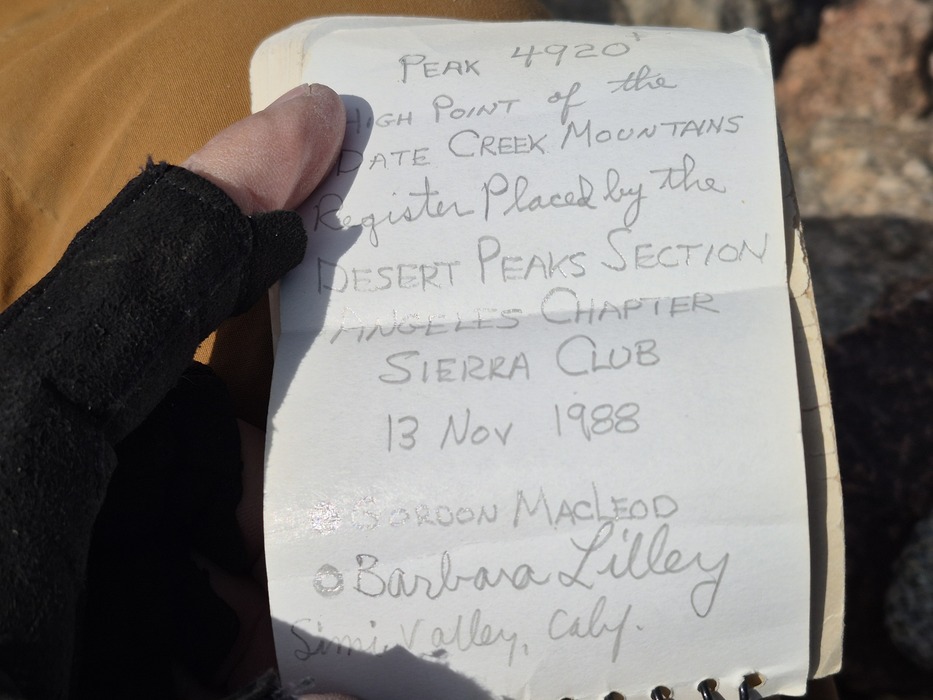 PEAK 4920'
HIGH POINT of the
DATE CREEK MOUNTAINS
Register Placed by the
DESERT PEAKS SECTION
ANGELES CHAPTER
SIERRA CLUB
13 Nov 1988
GORDON MACLEOD
Barbara Lilley
Simi Valley, Calif.